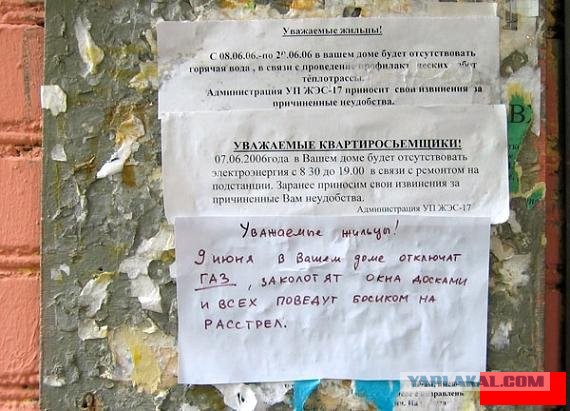 Уважаемые жильцы!
С 08.06.06.-по 20.06.06 в вашем доме будет отсутствовать
горячая вода , в связи с проведение
теплотрассы.
Администрация УП ЖЭС-17 приносит свои извинения за
причиненные неудобства.
УВАЖАЕМЫЕ КВАРТИРОСЬЕМЩИКИ!
07.06.2006года в Вашем доме будет отсутствовать
электроэнергия с 8 30 до 19.00 в связи с ремонтом на
подстанции. Заранее приносим свои извинения за
причиненные Вам неудобства.
Администрация УП ЖЭС-17
В
Уважаемые жильцы!
9 июня в Вашем доме отключат
ГАЗ , заколотят окна досками
и всех поведут босиком на
расстрел.
YAPLAKAL.COM